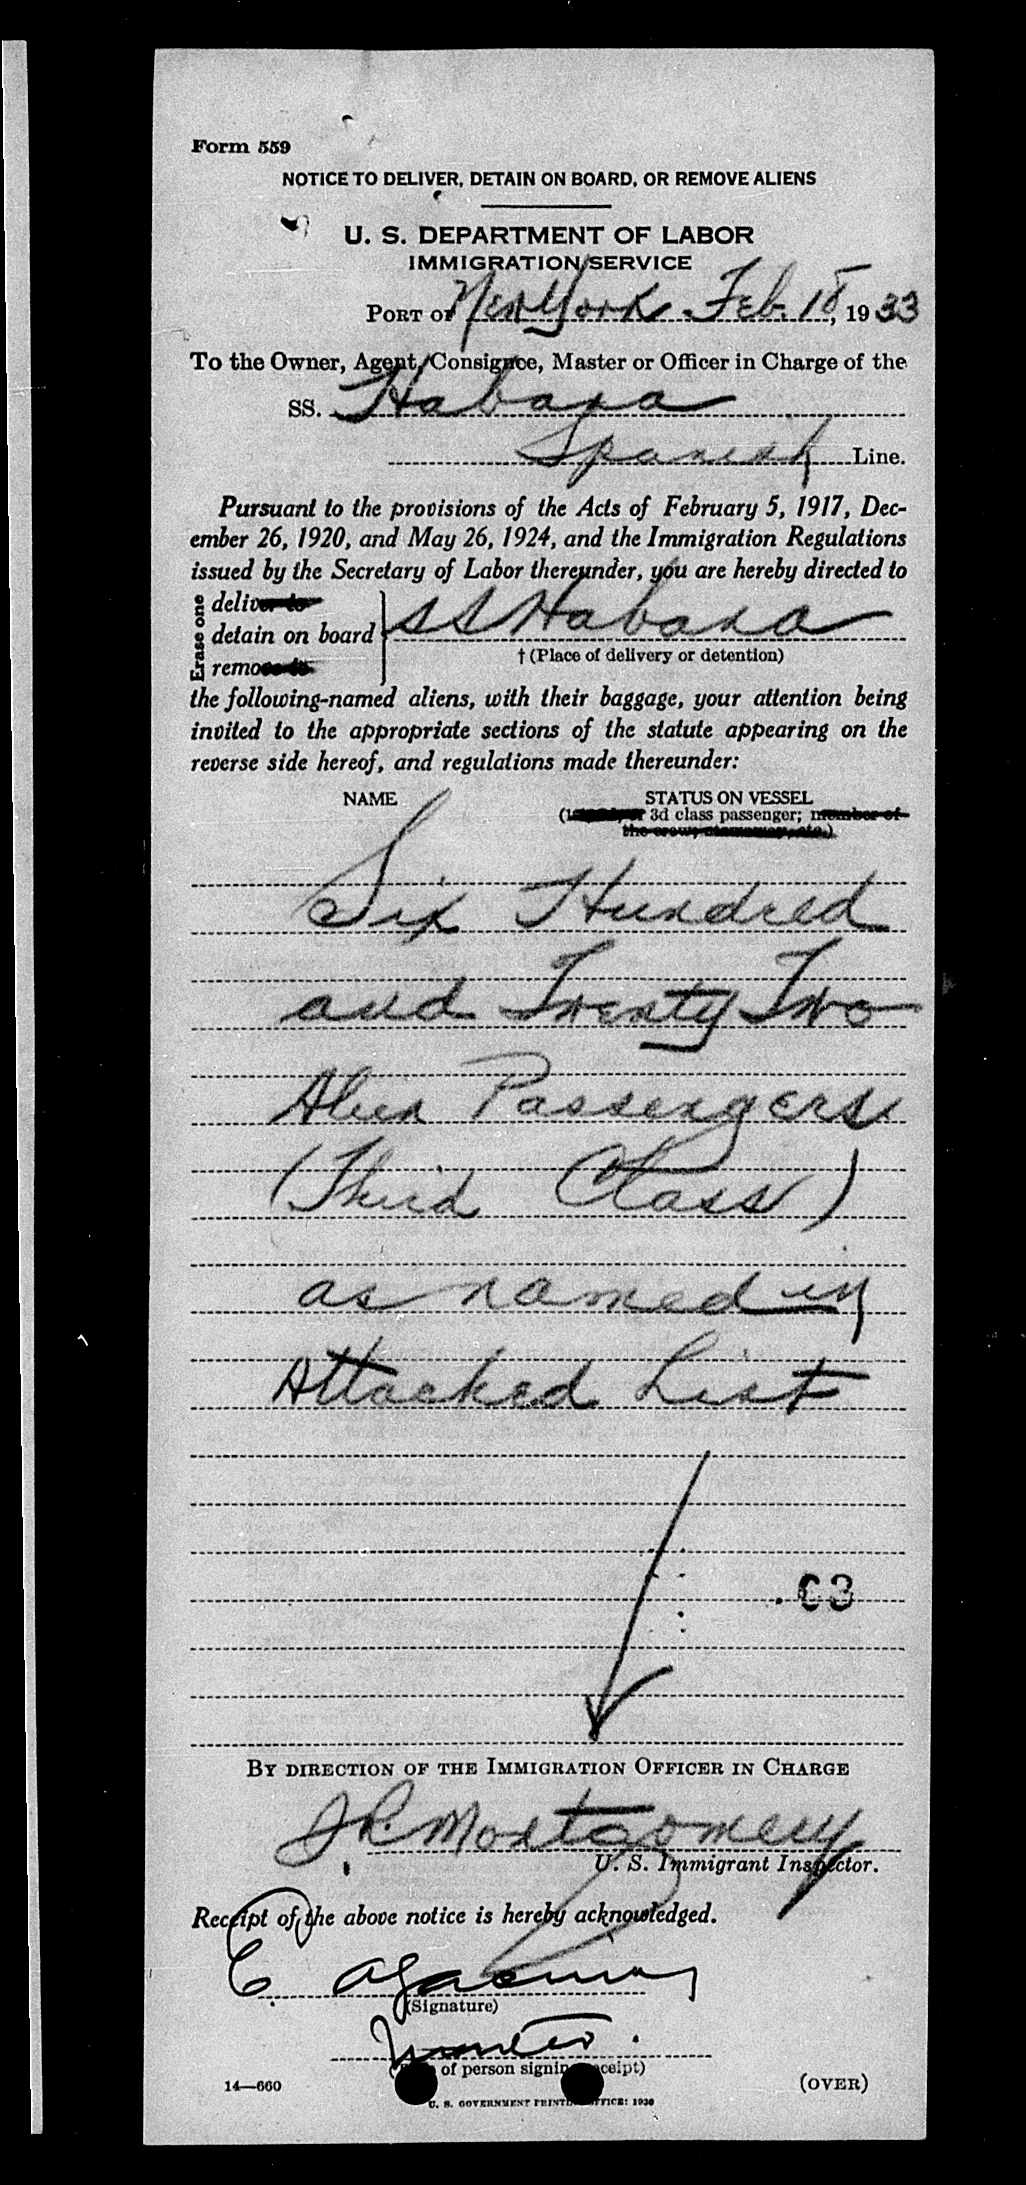 Form 559
NOTICE TO DELIVER, DETAIN ON BOARD, OR REMOVE ALIENS
U. S. DEPARTMENT OF LABOR
IMMIGRATION SERVICE
PORT OF New York Feb. 18, 1933
To the Owner, Agent, Consignee, Master or Officer in Charge of the
SS. Habana
Spanish Line.
Pursuant to the provisions of the Acts of February 5, 1917, Dec-
ember 26, 1920, and May 26, 1924, and the Immigration Regulations
issued by the Secretary of Labor thereunder, you are hereby directed to
Erase one
deliver to
detain on board SS Habana
remove to
† (Place of delivery or detention)
the following-named aliens, with their baggage, your attention being
invited to the appropriate sections of the statute appearing on the
reverse side hereof, and regulations made thereunder:
NAME STATUS ON VESSEL
3d class passenger; member of
the crew,
Six Hundred
and Twenty Two
Alien Passengers
(Third Class)
as named in
Attached List
BY DIRECTION OF THE IMMIGRATION OFFICER IN CHARGE
Montgomery
U. S. Immigrant Inspector.
Receipt of the above notice is hereby acknowledged.
(Signature)
of person signing receipt)
14—660 (OVER)
U. S. GOVERNMENT PRINTING OFFICE: 1930